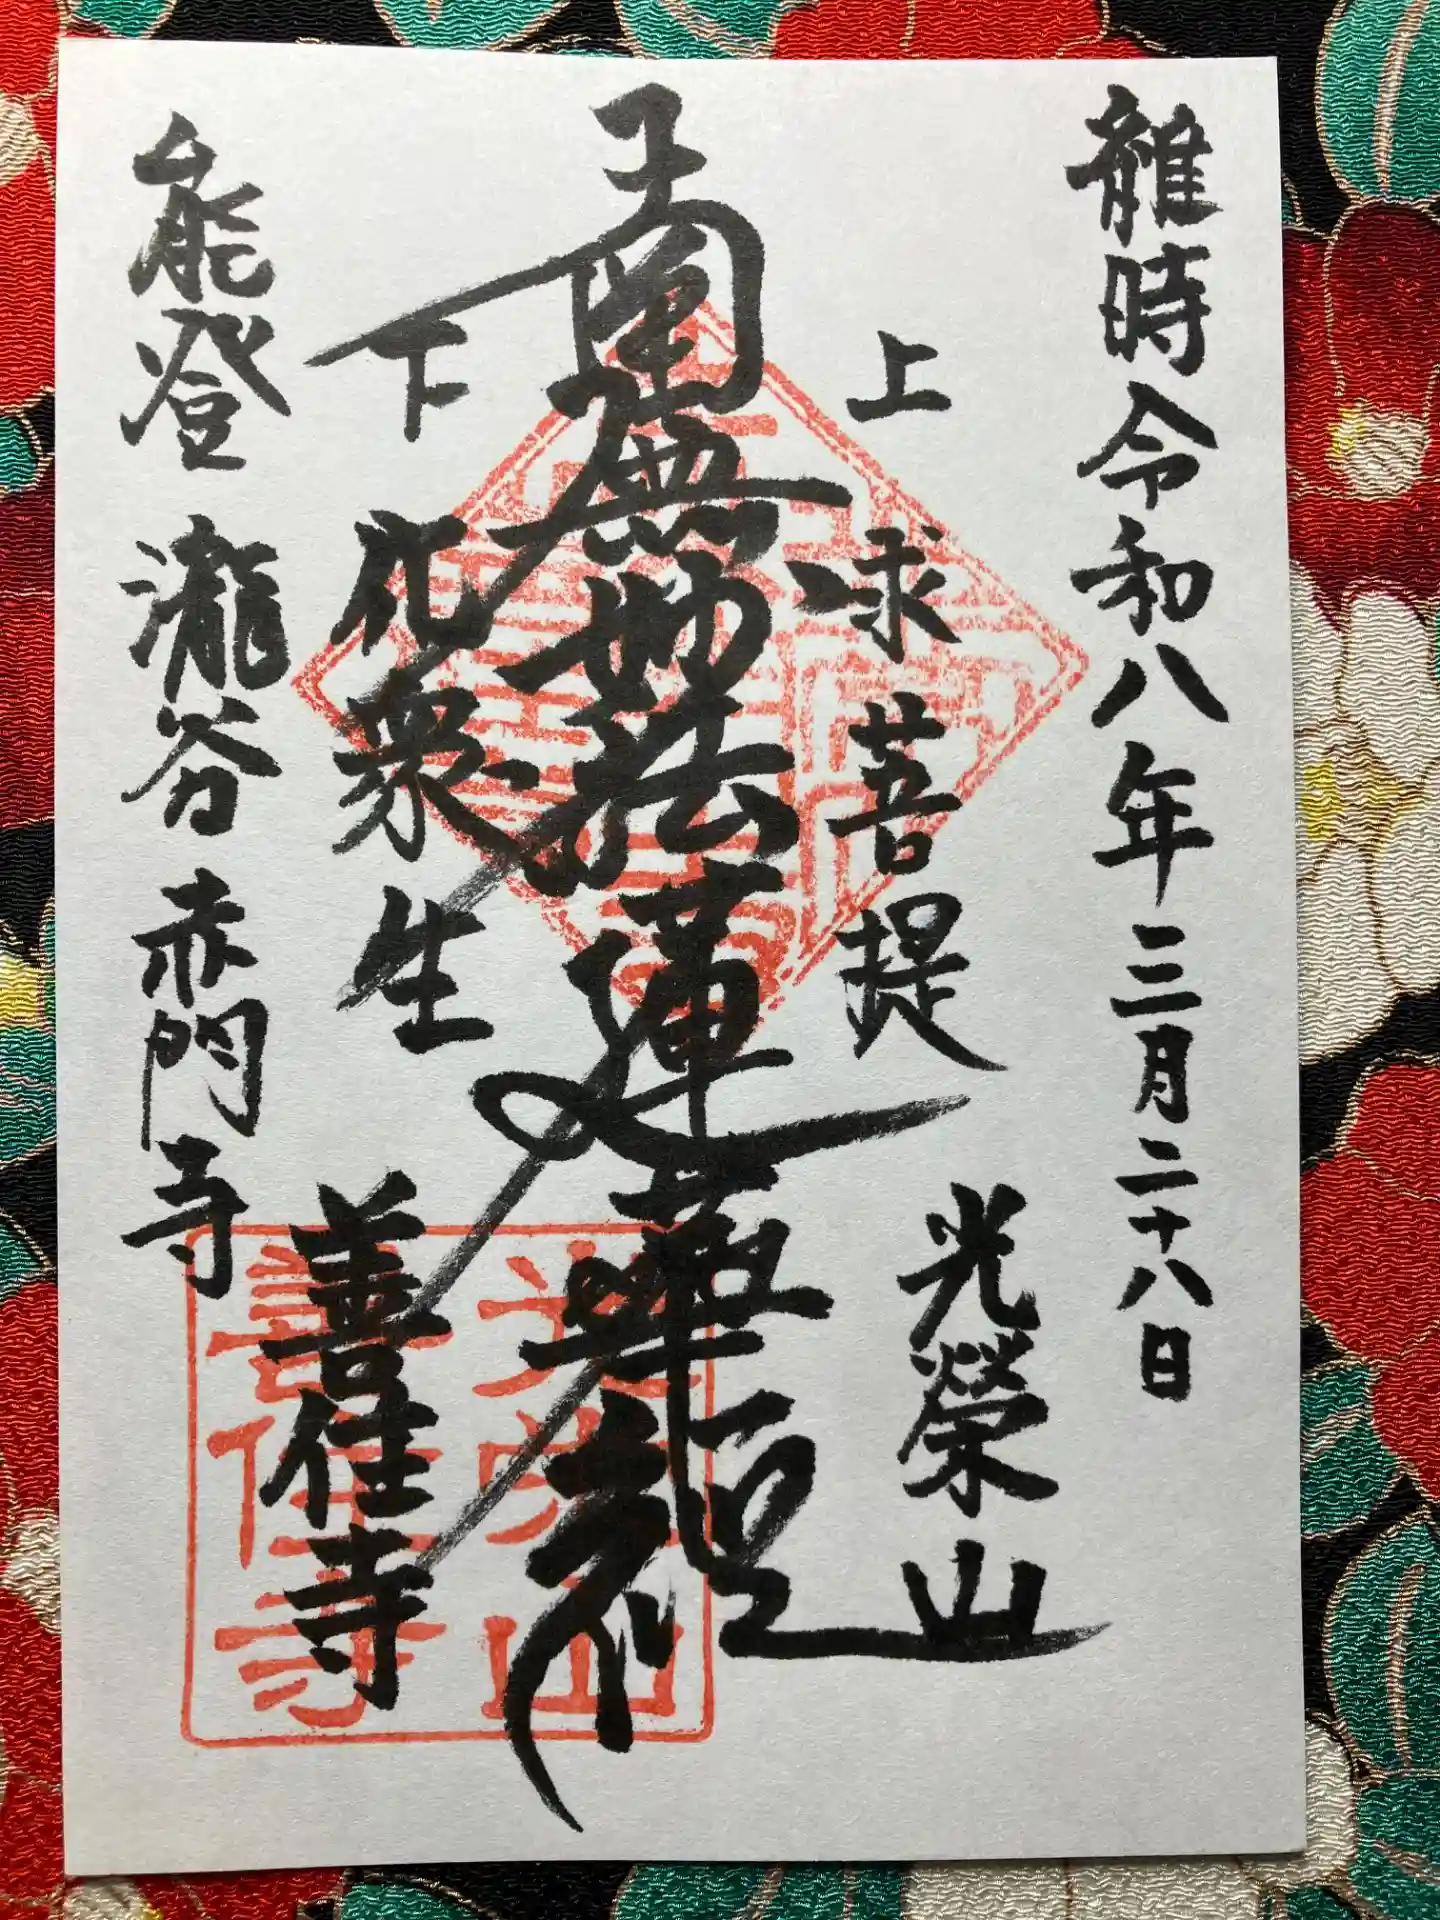 維時令和八年三月二十八日
上求菩提
光榮山
南無妙法蓮華経
下化衆生
善住寺
能登 瀧谷 赤門寺
光栄山
善住寺